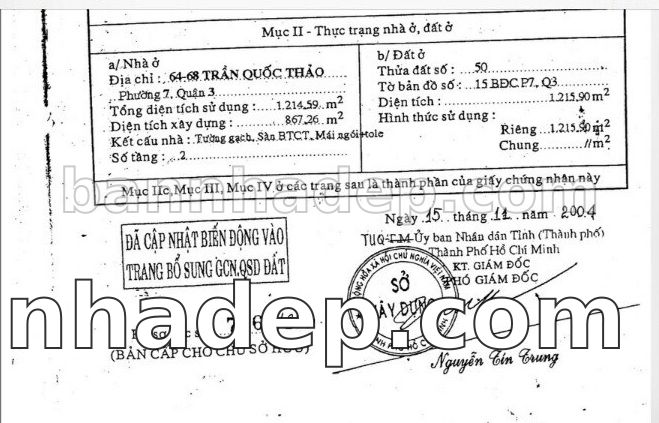 Mục II - Thực trạng nhà ở, đất ở
a/ Nhà ở
Địa chỉ : 64-68 TRẦN QUỐC THẢO
Phường 7, Quận 3
Tổng diện tích sử dụng : 1.214,59 m²
Diện tích xây dựng : 867,26 m²
Kết cấu nhà : Tường gạch, Sàn BTCT, Mái ngói+tole
Số tầng : 2
b/ Đất ở
Thửa đất số : 50
Tờ bản đồ số : 15 BĐC P7, Q3
Diện tích : 1.215,90 m²
Hình thức sử dụng :
Riêng 1.215,90 m²
Chung // m²
Mục IIc, Mục III, Mục IV ở các trang sau là thành phần của giấy chứng nhận này
bannhadep.com
Ngày 15 tháng 11 năm 2004
TUQ T.M Ủy ban Nhân dân Tỉnh (Thành phố)
Thành Phố Hồ Chí Minh
KT. GIÁM ĐỐC
PHÓ GIÁM ĐỐC
ĐÃ CẬP NHẬT BIẾN ĐỘNG VÀO
TRANG BỔ SUNG GCN.QSD ĐẤT
SỞ
XÂY DỰNG
nhadep.com
(BẢN CẤP CHO CHỦ SỞ HỮU)
Nguyễn Tín Trung